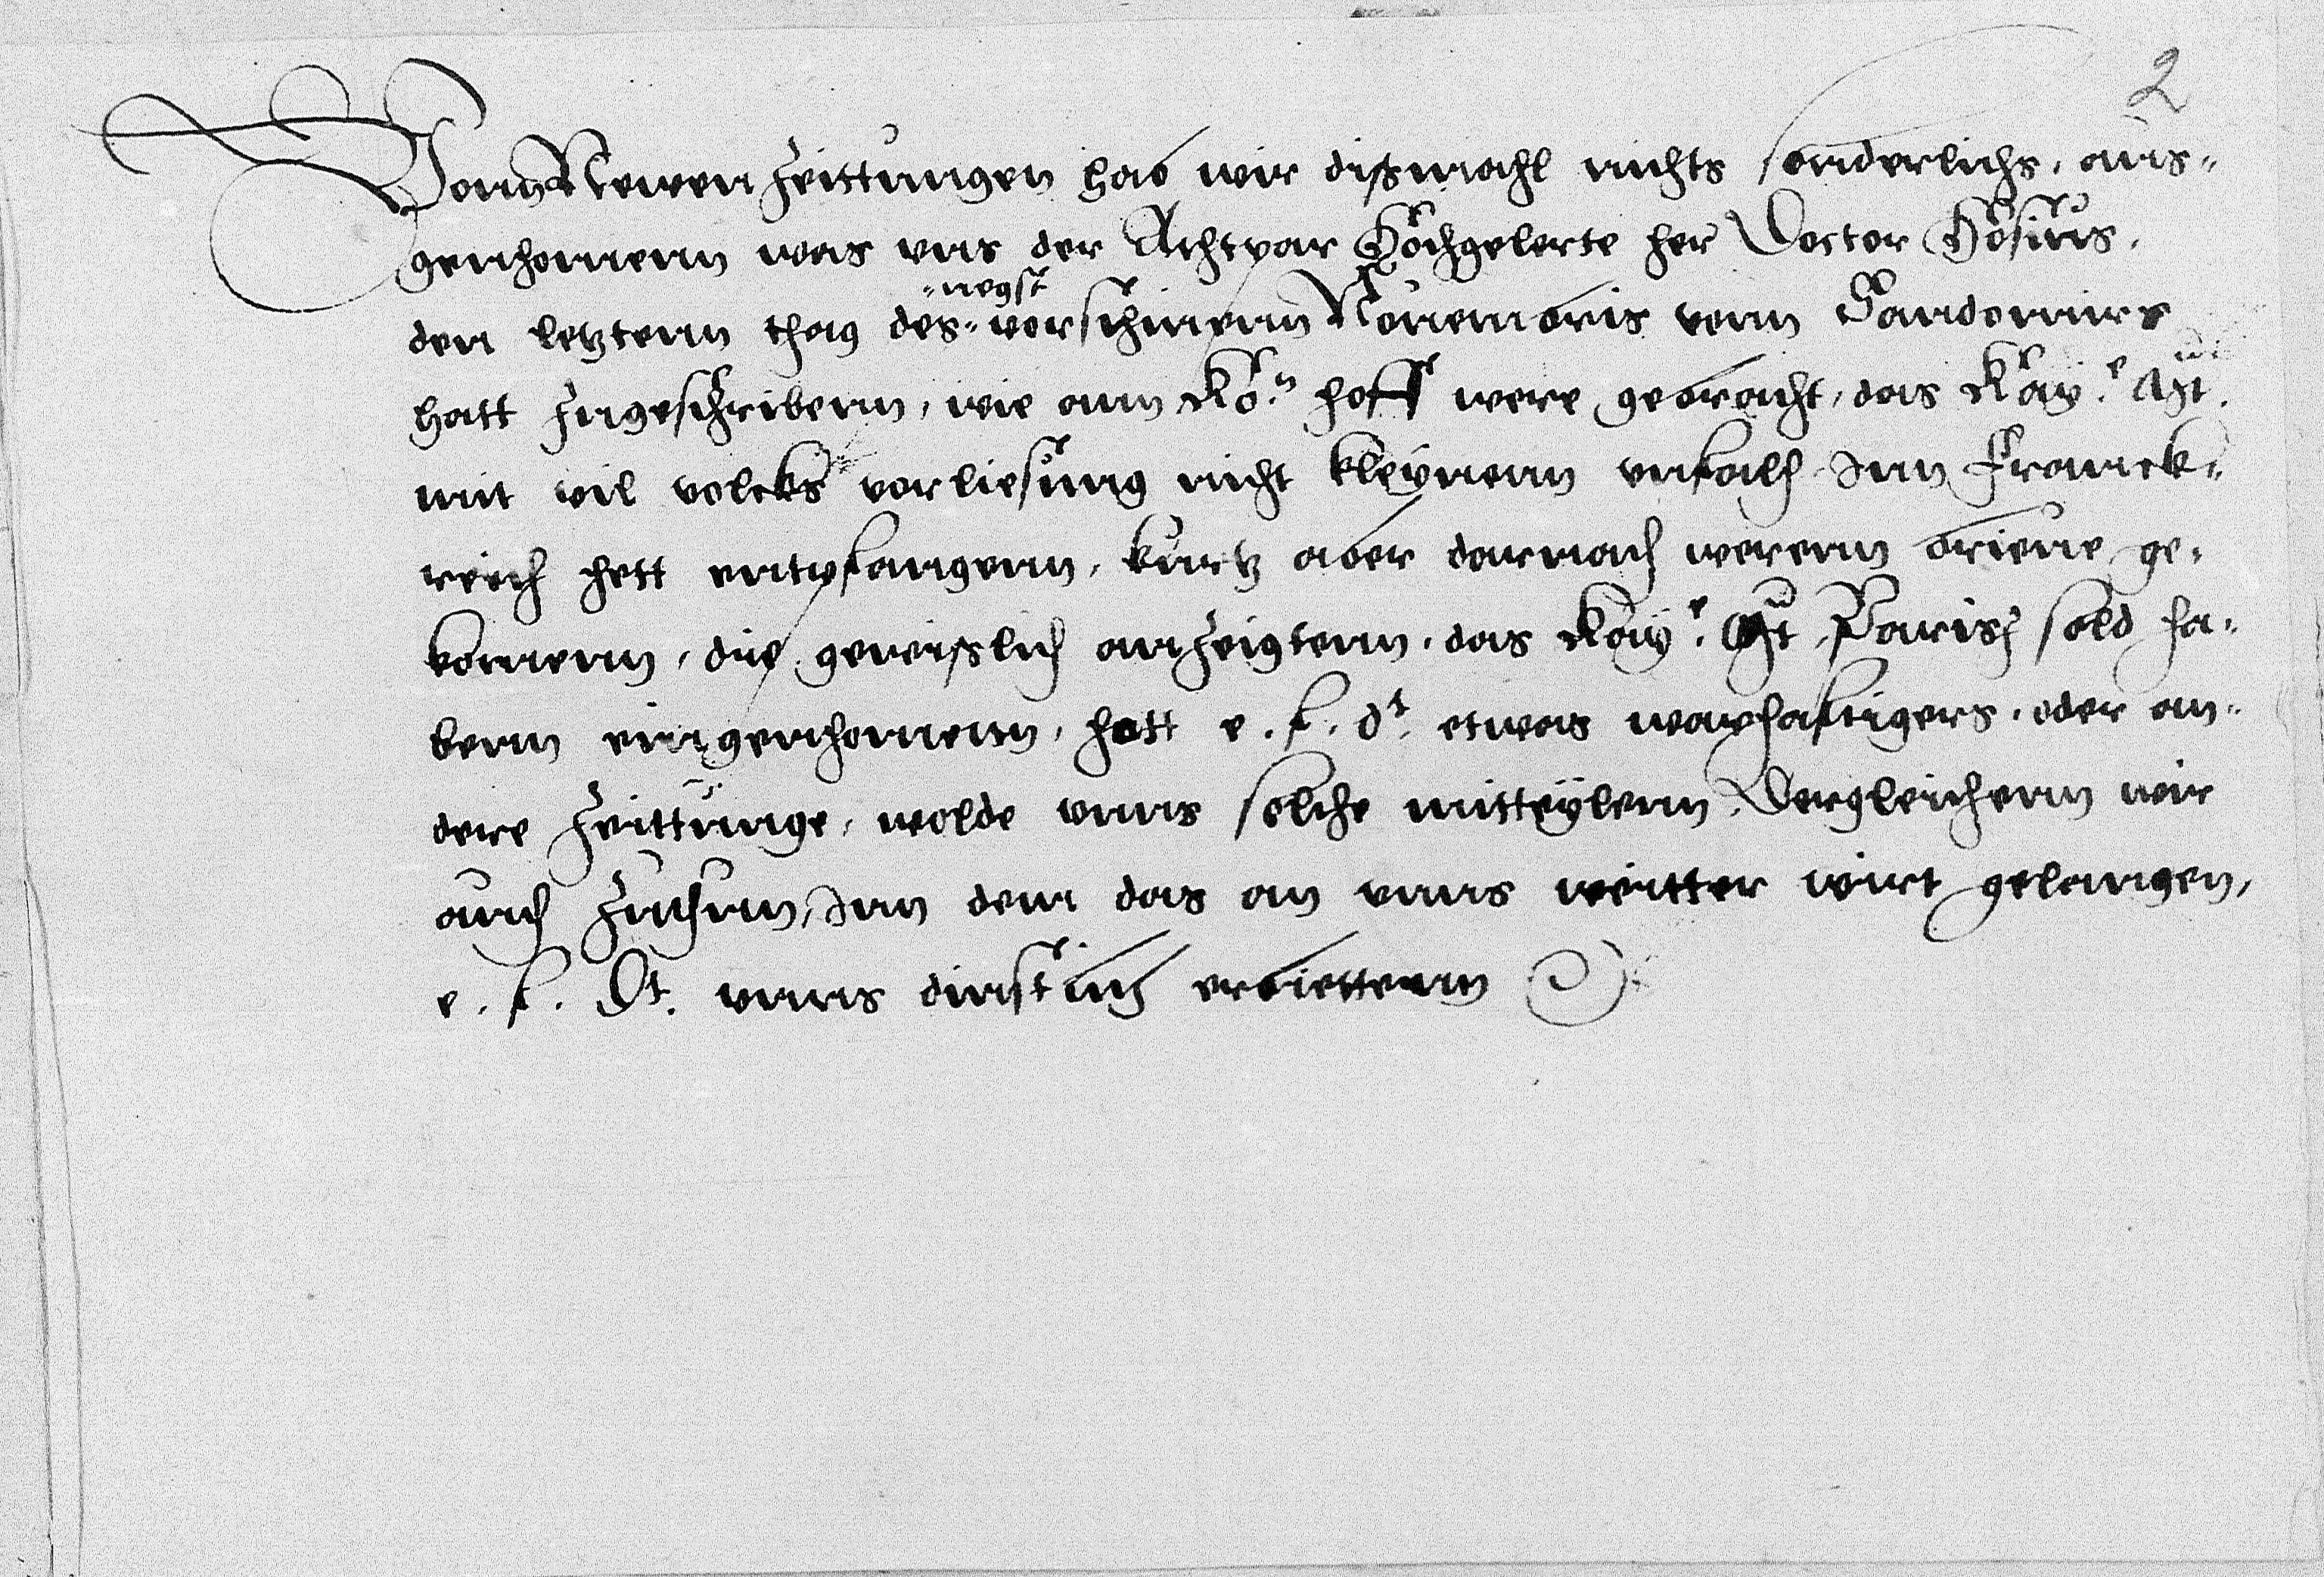 2
Vonn Newen zeittungen hab wir dißmahl nichts sonderlichs, aus-
genhomenn was uns der Achtpar Hochgelerte her Doctor Hosius,
negst
den letztenn thag des vorschinenn Novembris vonn Sandomirs
hatt zugeschribenn, wie ann Ko.n hoff were gebracht, das Kay.e Mt.
mit vil volcks vorliesung nicht kleynenn unfalh Inn Franck-
reich hett entpfangenn, kurtz aber darnach werenn brieve ge-
komenn, die gewißlich anzeigtenn, das Kay.e Mt Parisch sold ha-
benn eingenhomenn, hatt e. f. dt. etwas warhafftigers, oder an-
dere zeittunge, wolde unns solche mitteylenn, Dergleichenn wir
auch zuthun, Inn dem das an unns weitter wirt gelangen,
e. f. Dt. unns dinstlich erbiettenn